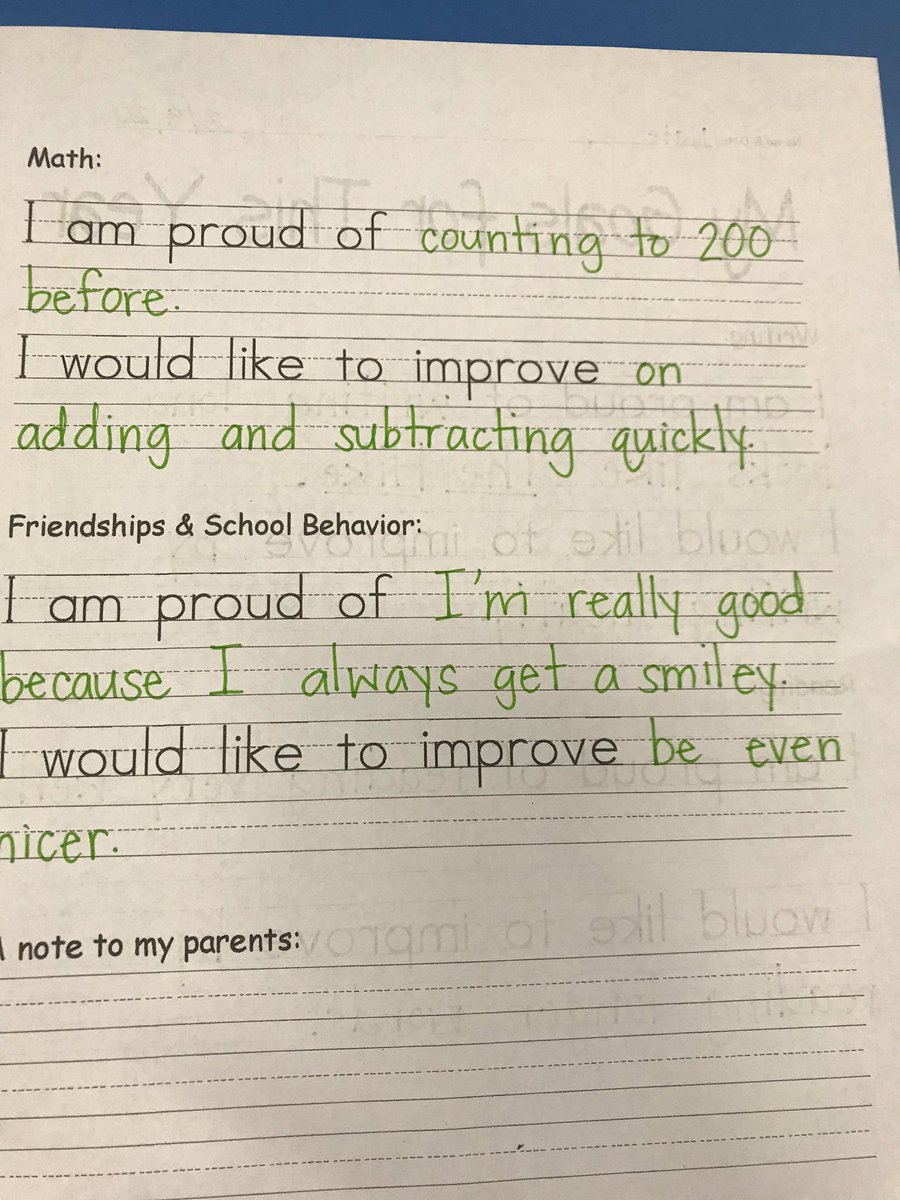 Math:
I am proud of counting to 200
before.
I would like to improve on
adding and subtracting quickly.
Friendships & School Behavior:
I am proud of I'm really good
because I always get a smiley.
I would like to improve be even
nicer.
note to my parents: